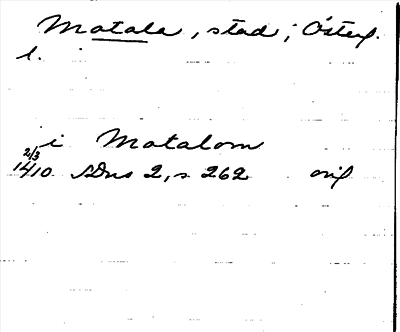 Motala, stad; Österg.
l.
i Motalom
2/3
1410. SDns 2, s 262 orig